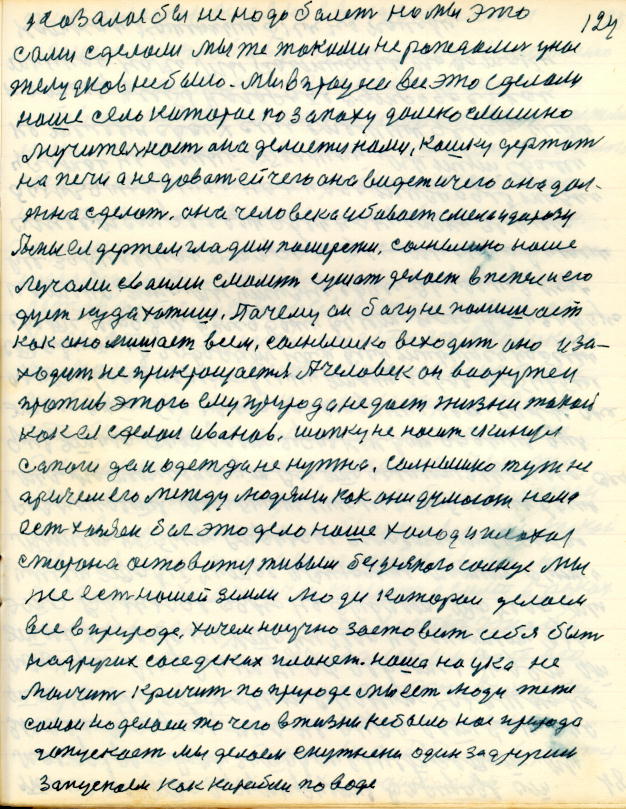 казалос бы не надо болет но мы это 124
сами сделали мы же такими не рождались у нас
желудков не было. Мы в трау не все это сделали
наше село каторое по запаху далеко слышно
мучителност она делается нами, кошку держат
на печи а не доват ей чего она видет ичего она дол-
жна сделат. она человека
бы мы ел держем гладим по шерсти. солнышко наше
лучами своими сушат делает в пепел и его
дует куда хотиш. Пачему он богу не помишает
как оно мишает всем, солнышко всходит оно и за-
ходит не прикращается А человек он вооружен
против этого ему природа не дает жизни такой
как ел сделал иванов. шапку не носит скинул
сапоги да и одежда не нужна. солнышко тут не
причем его между людями как они думают нема
ест хозяен бог это дело наше холод и плохая
старона оставатся живым без всякого солнце Мы
же ест нашей земли люди каторои делаем
все в природе. хочем научно заставит себя быт
на других соседских планет. наша наука не
молчит кричит по природе мы ест люди теже
самои но делаем то чего в жизни не было нас природа
допускает мы делаем спутнеки один за другим
запускаем как карабли по воде